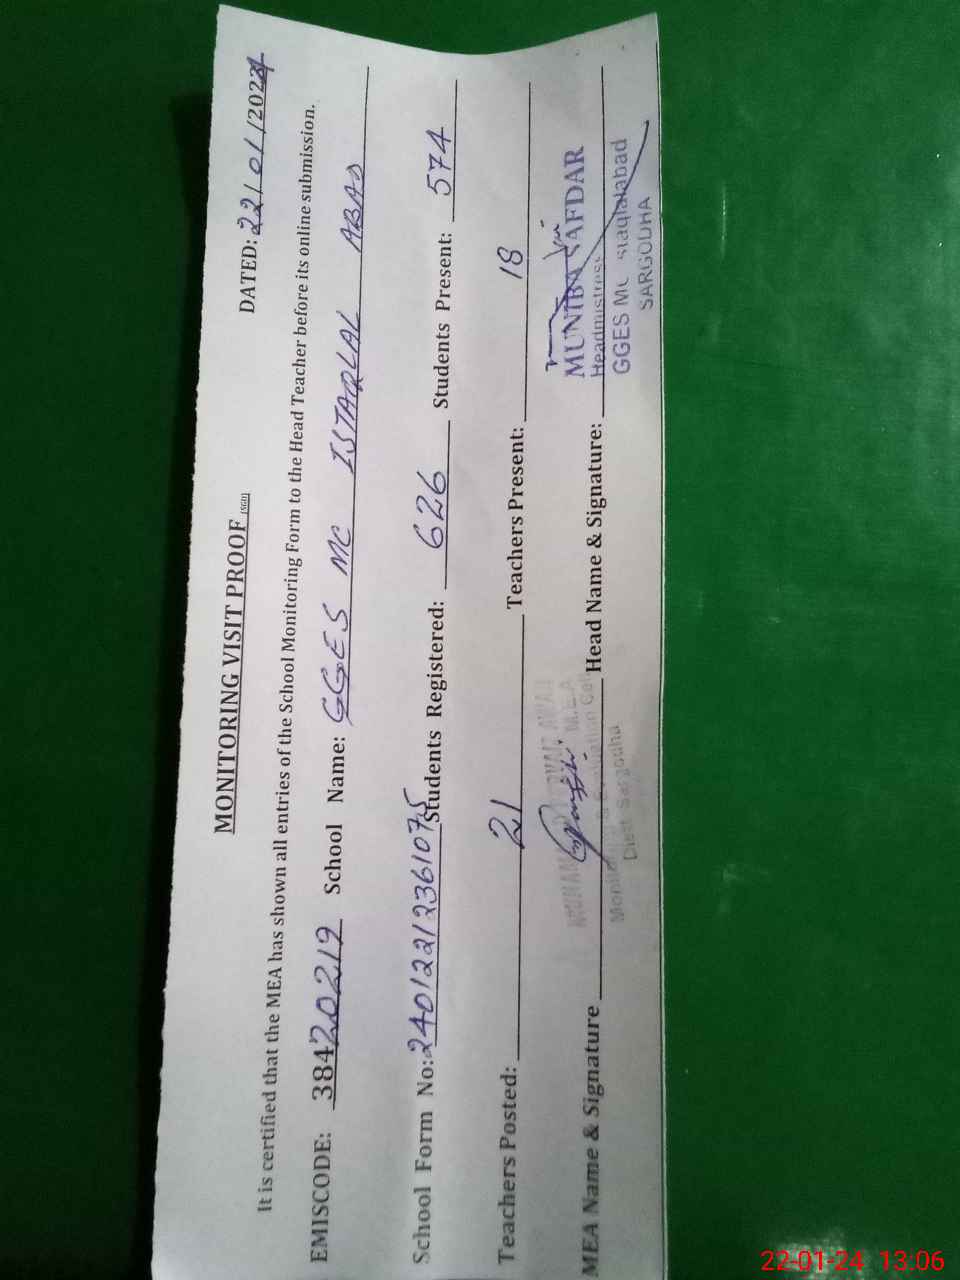 MONITORING VISIT PROOF (SGD)
DATED: 22/01/2024
It is certified that the MEA has shown all entries of the School Monitoring Form to the Head Teacher before its online submission.
EMISCODE: 38420219 School Name: GGES MC ISTAQLAL ABAD
School Form No: 24012212361075 Students Registered: 626 Students Present: 574
Teachers Posted: 21 Teachers Present: 18
MEA Name & Signature Head Name & Signature:
M.E.A
Monitoring & Evaluation Cell
Distt Sargodha
MUNIBA SAFDAR
Headmistress
GGES MC Istaqlalabad
SARGODHA
22-01-24 13:06